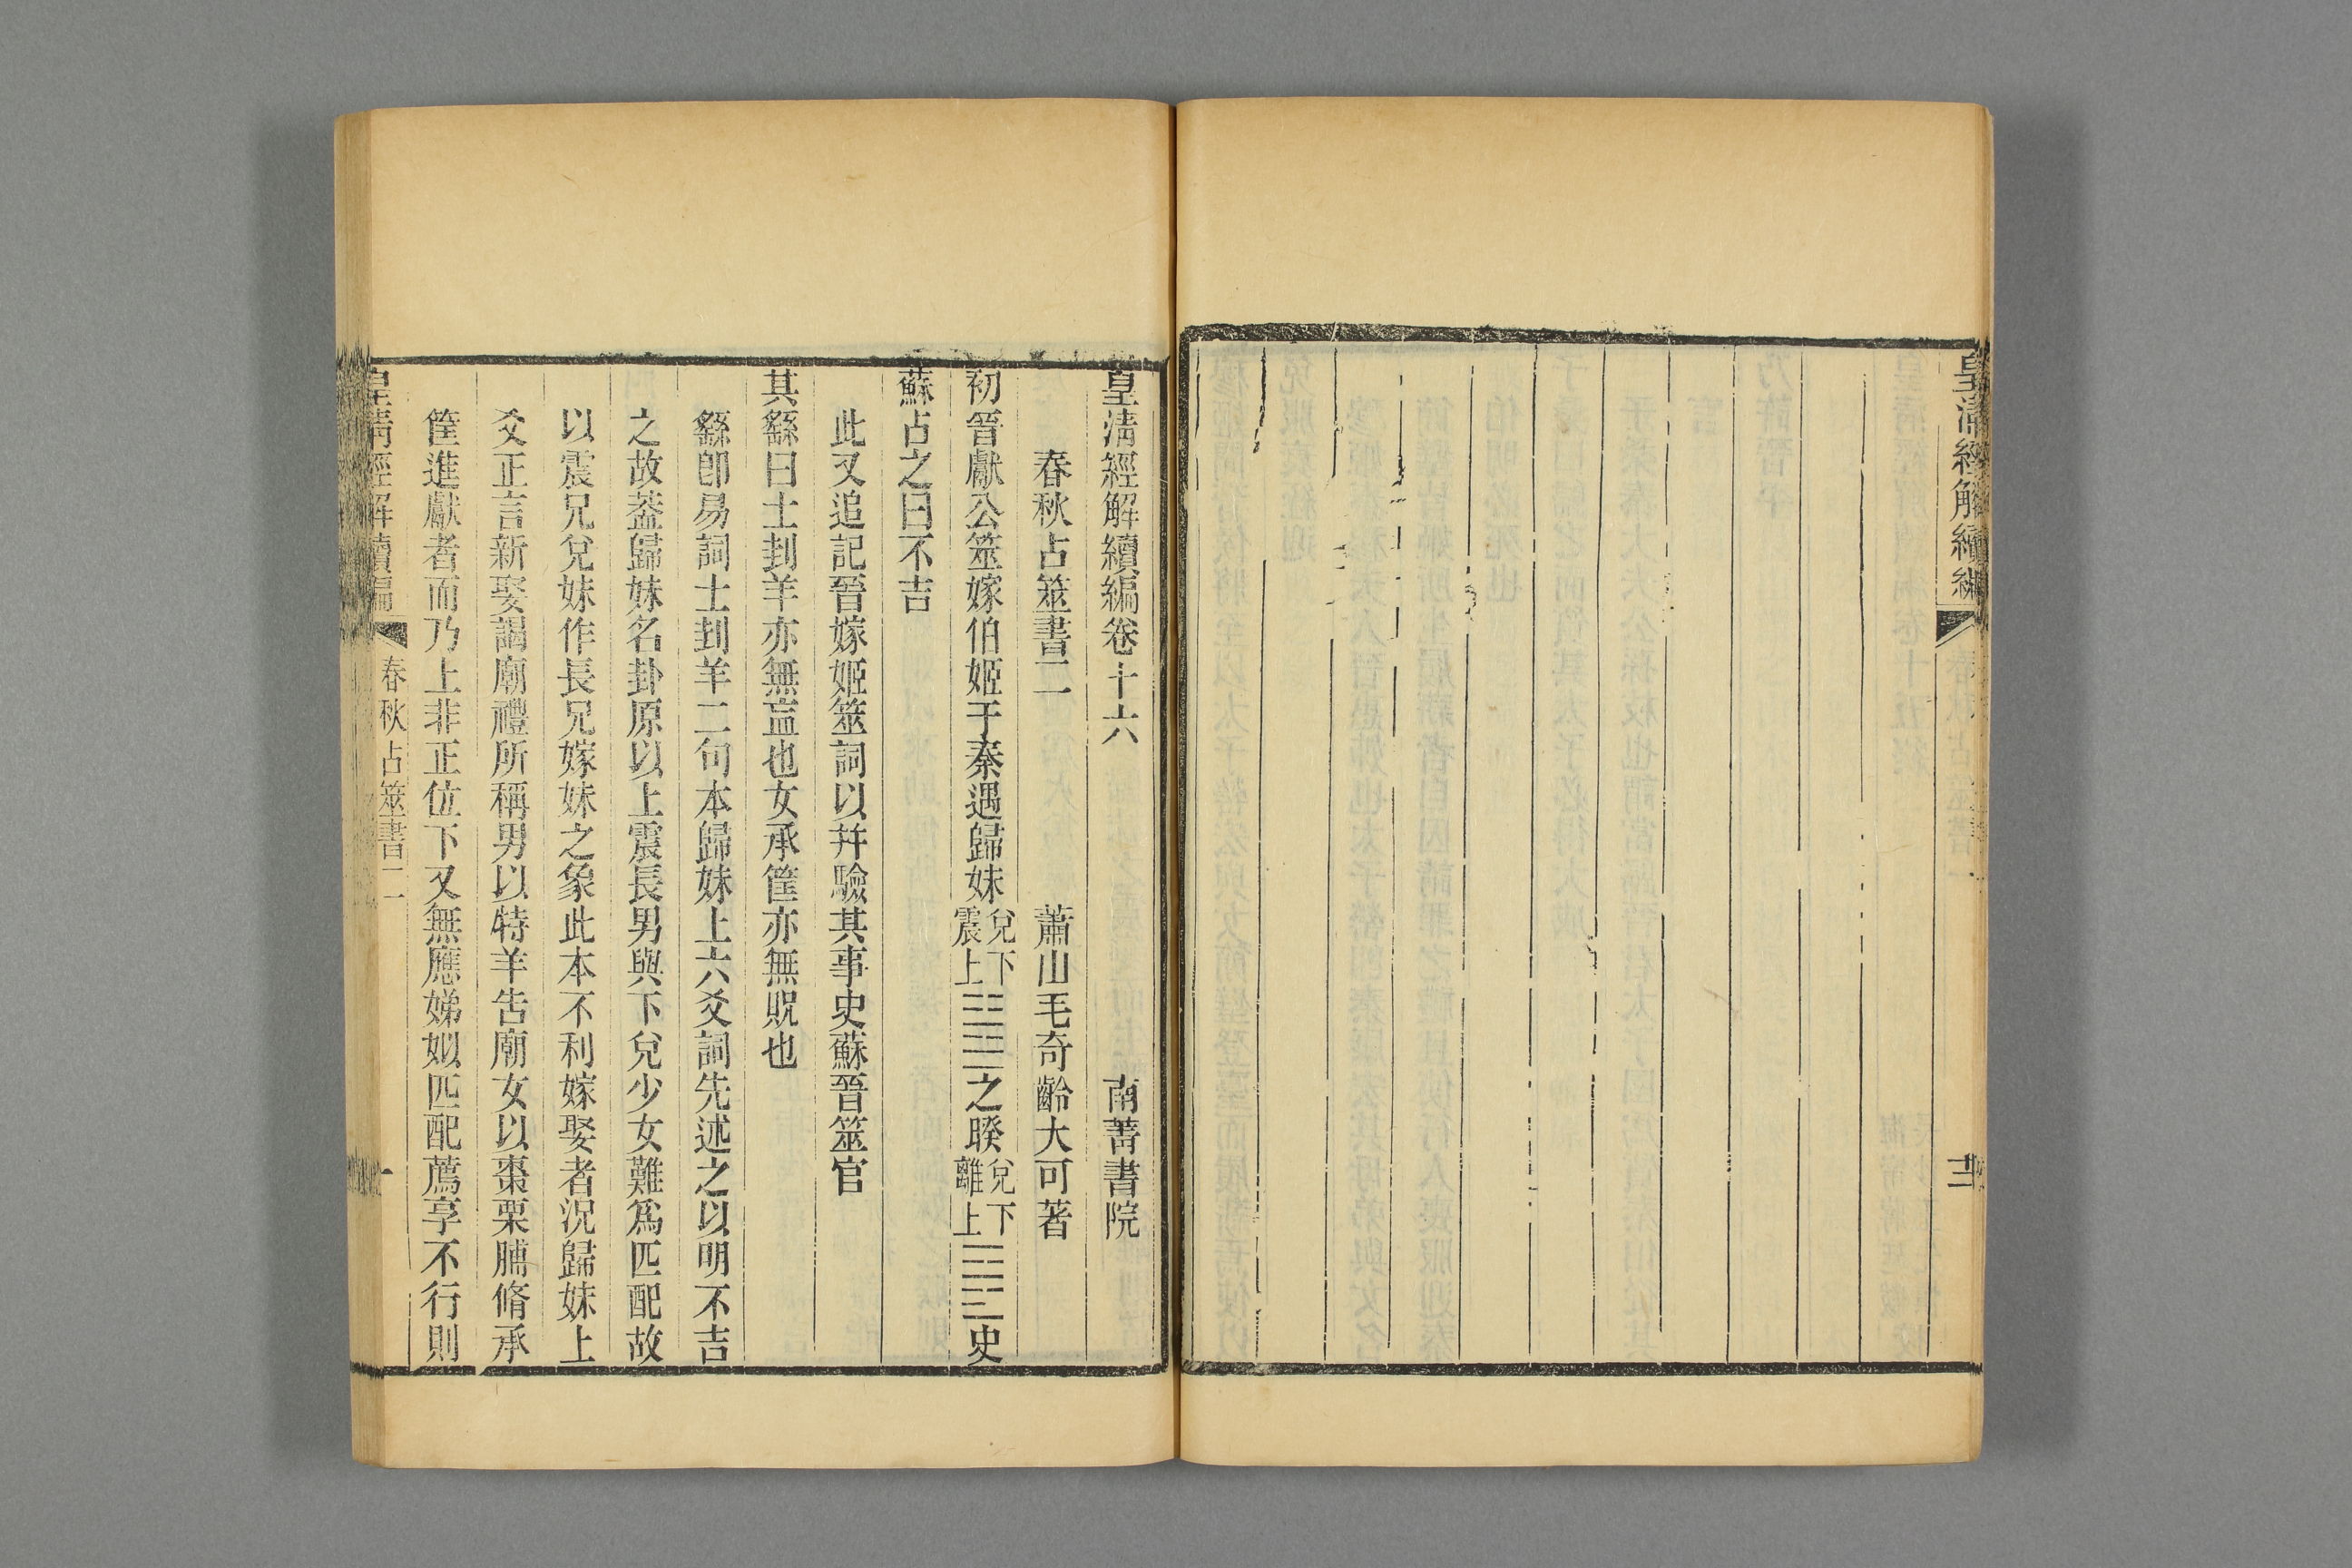 皇清經解續編
皇清經解續編卷十六 南菁書院
春秋占筮書二 蕭山毛奇齡大可著
初晉獻公筮嫁伯姬于秦遇歸妹兌下震上之睽兌下離上史
蘇占之曰不吉
此又追記晉嫁姬筮詞以幷驗其事史蘇晉筮官
其繇曰士刲羊亦無衁也女承筐亦無貺也
繇卽易詞士刲羊二句本歸妹上六爻詞先述之以明不吉
之故葢歸妹名卦原以上震長男與下兌少女難爲匹配故
以震兄兌妹作長兄嫁妹之象此本不利嫁娶者況歸妹上
爻正言新娶謁廟禮所稱男以特羊告廟女以棗栗脯脩承
筐進獻者而乃上非正位下又無應娣姒匹配薦享不行則
皇淸經解續編 春秋占筮書二 一